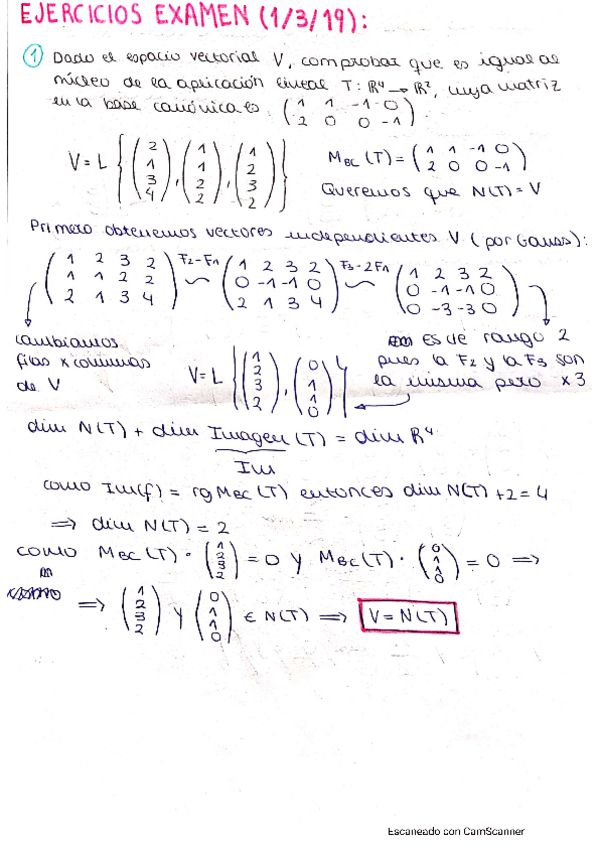 EJERCICIOS EXAMEN (1/3/19):
① Dado el espacio vectorial V, comprobar que es igual al
núcleo de la aplicación lineal T: ℝ⁴ → ℝ², cuya matriz
en la base canónica es (1 1 -1 0 / 2 0 0 -1).
V = L {(2 1 3 4), (1 1 2 2), (1 2 3 2)} M_BC (T) = (1 1 -1 0 / 2 0 0 -1)
Queremos que N(T) = V
Primero obtenemos vectores independientes V (por Gauss):
(1 2 3 2 / 1 1 2 2 / 2 1 3 4) F2-F1 ~ (1 2 3 2 / 0 -1 -1 0 / 2 1 3 4) F3-2F1 ~ (1 2 3 2 / 0 -1 -1 0 / 0 -3 -3 0)
cambiamos
filas x columnas
de V
V = L {(1 2 3 2), (0 1 1 0)}
es de rango 2
pues la F2 y la F3 son
la misma pero x3
dim N(T) + dim Imagen (T) = dim ℝ⁴
Im
como Im(f) = rg M_BC (T) entonces dim N(T) + 2 = 4
⇒ dim N(T) = 2
como M_BC (T) · (1 2 3 2) = 0 y M_BC (T) · (0 1 1 0) = 0 ⇒
⇒ (1 2 3 2) y (0 1 1 0) ∈ N(T) ⇒ V = N(T)
Escaneado con CamScanner